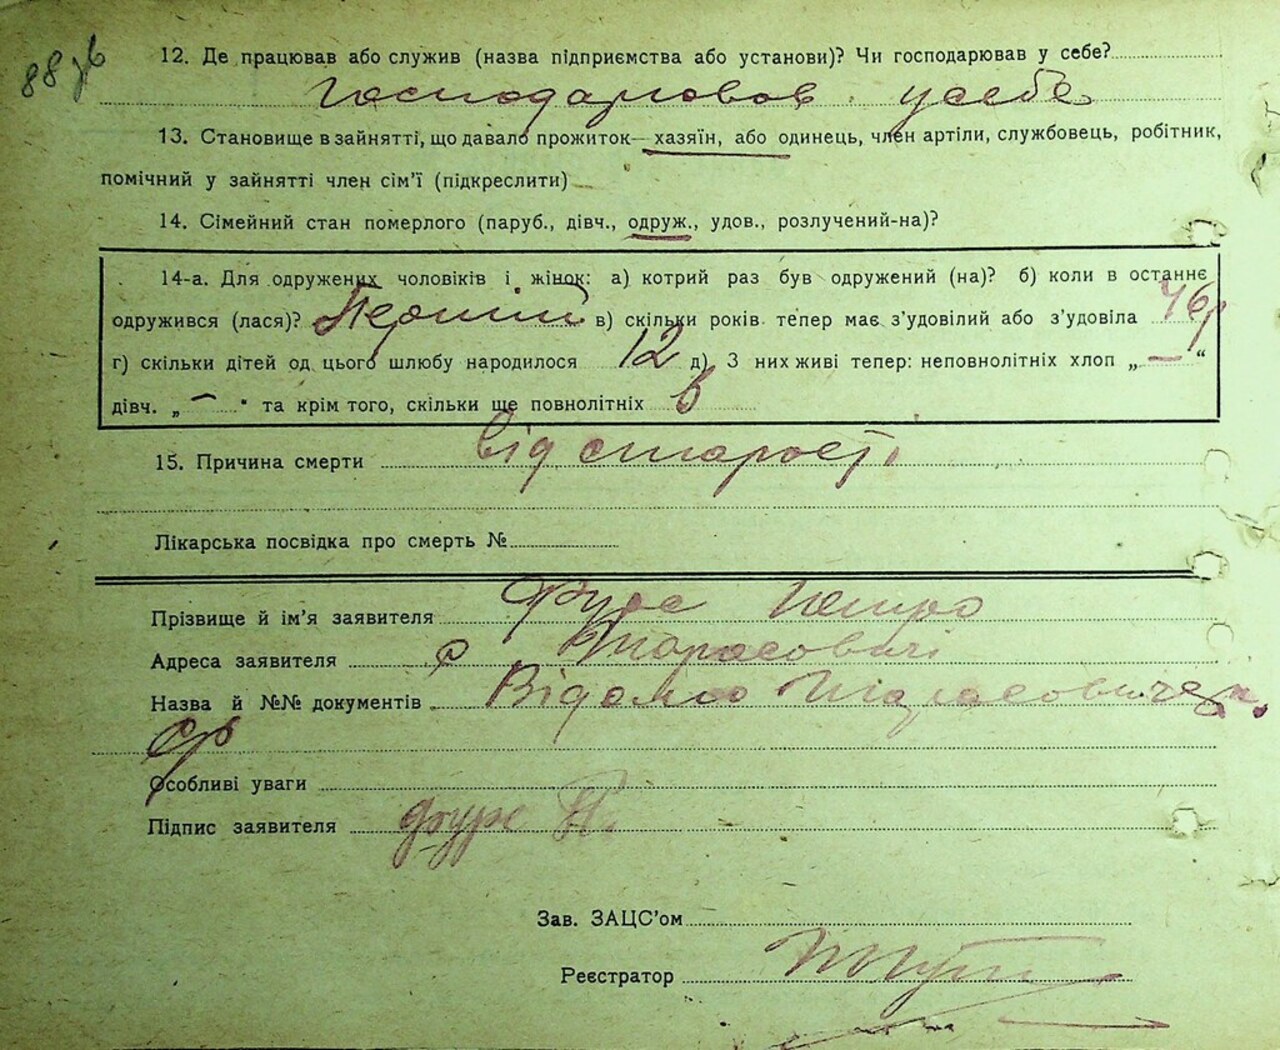 88 зв
12. Де працював або служив (назва підприємства або установи)? Чи господарював у себе?
Господарював у себе
13. Становище в зайнятті, що давало прожиток—хазяїн, або одинець, член артіли, службовець, робітник,
помічний у зайнятті член сім’ї (підкреслити)
14. Сімейний стан померлого (паруб., дівч., одруж., удов., розлучений-на)?
14-а. Для одружених чоловіків і жінок: а) котрий раз був одружений (на)? б) коли в останнє
одружився (лася)? Перший в) скільки років тепер має з’удовілий або з’удовіла
г) скільки дітей од цього шлюбу народилося 12 д) З них живі тепер: неповнолітніх хлоп „—“
дівч. „—“ та крім того, скільки ще повнолітніх
15. Причина смерти від старості
Лікарська посвідка про смерть №
Прізвище й ім’я заявителя Фурс Петро
Адреса заявителя с Тарасовичі
Назва й №№ документів Відомо Тарасовичск.
ср
Особливі уваги
Підпис заявителя Фурс П.
Зав. ЗАЦС’ом
Реєстратор